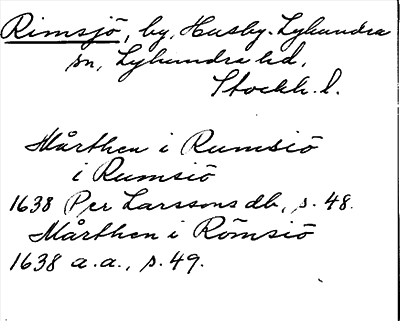 Rimsjö, by, Husby-Lyhundra
sn, Lyhundra hd,
Stockh. l.
Mårthen i Rumsiö
i Rumsiö
1638 Per Larssons db, s. 48.
Mårthen i Römsiö
1638 a.a., s. 49.